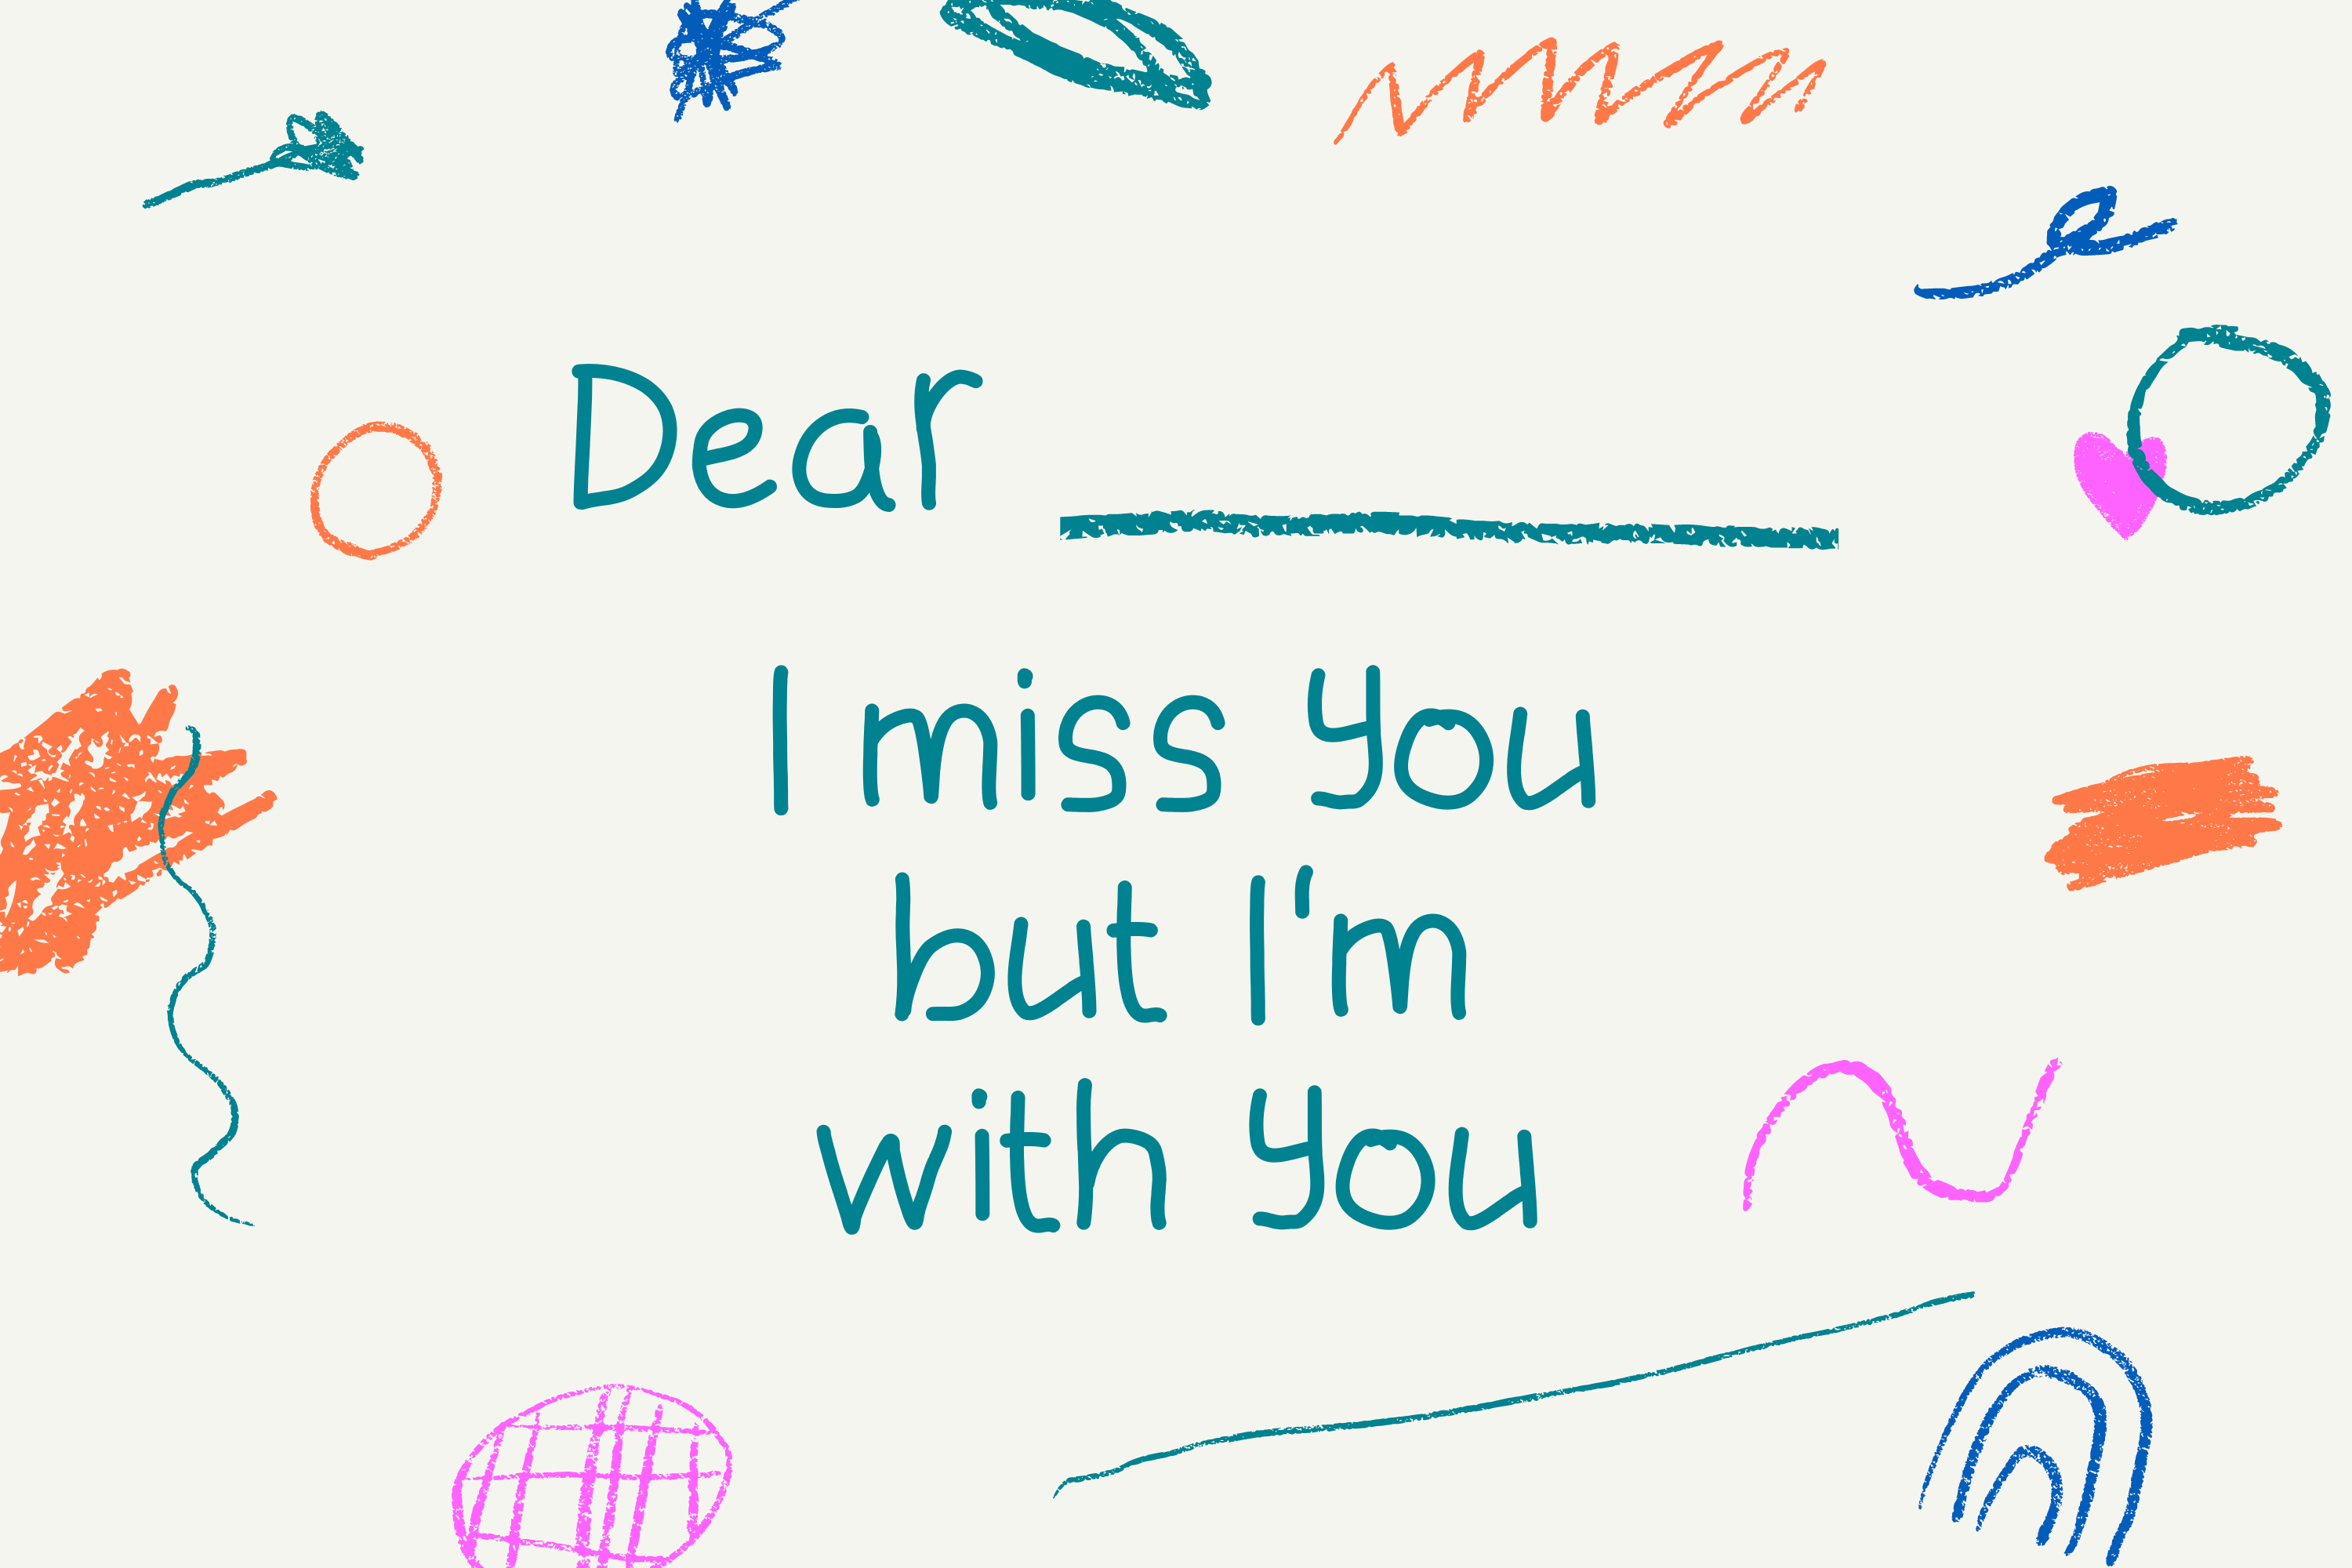 Dear
I miss You
but I'm
with You